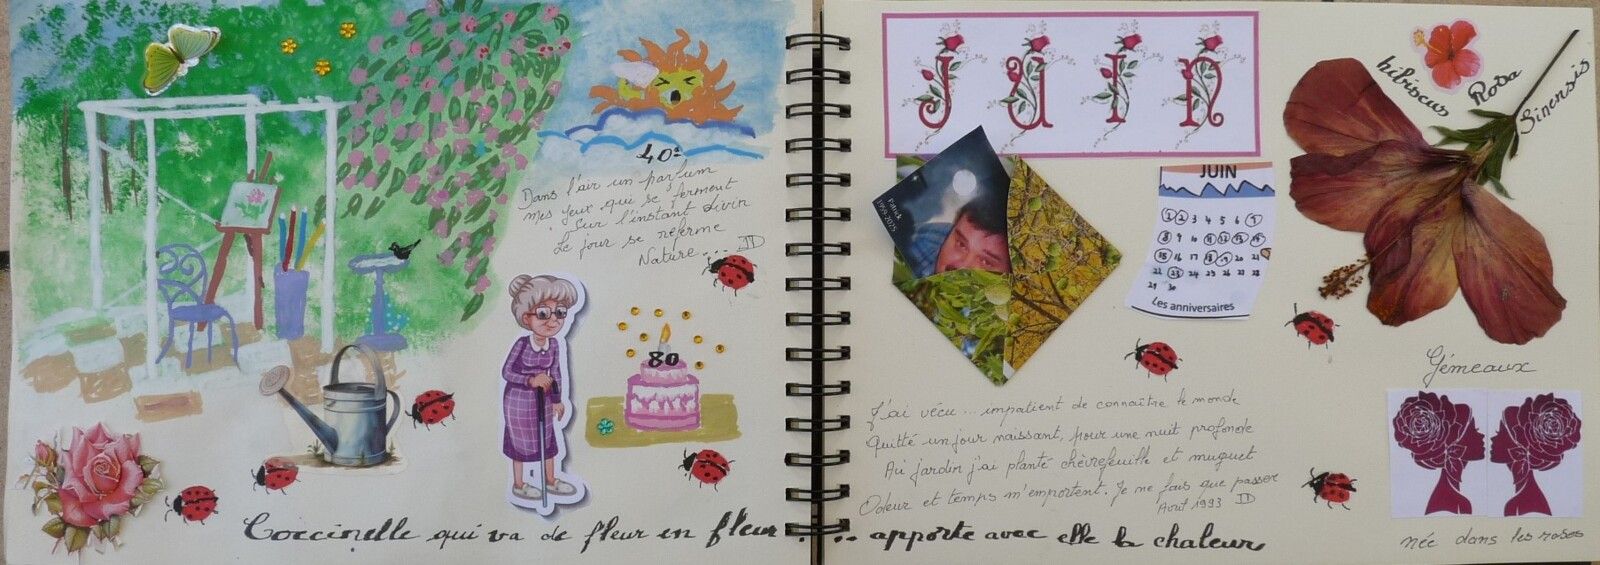 40°
Dans l'air un parfum
mes yeux qui se ferment
Sur l'instant divin
Le jour se referme
Nature... JD
80
Coccinelle qui va de fleur en fleur ... apporte avec elle la chaleur
JUIN
Patrick
1959-2025
JUIN
1 2 3 4 5 6 7
8 9 10 11 12 13 14
15 16 17 18 19 20 21
22 23 24 25 26 27 28
29 30
Les anniversaires
hibiscus Rosa Sinensis
J'ai vécu... impatient de connaître le monde
Quitté un jour naissant, pour une nuit profonde
Au jardin j'ai planté chèvrefeuille et muguet
Odeur et temps m'emportent. Je ne fais que passer
Août 1993 JD
Gémeaux
née dans les roses